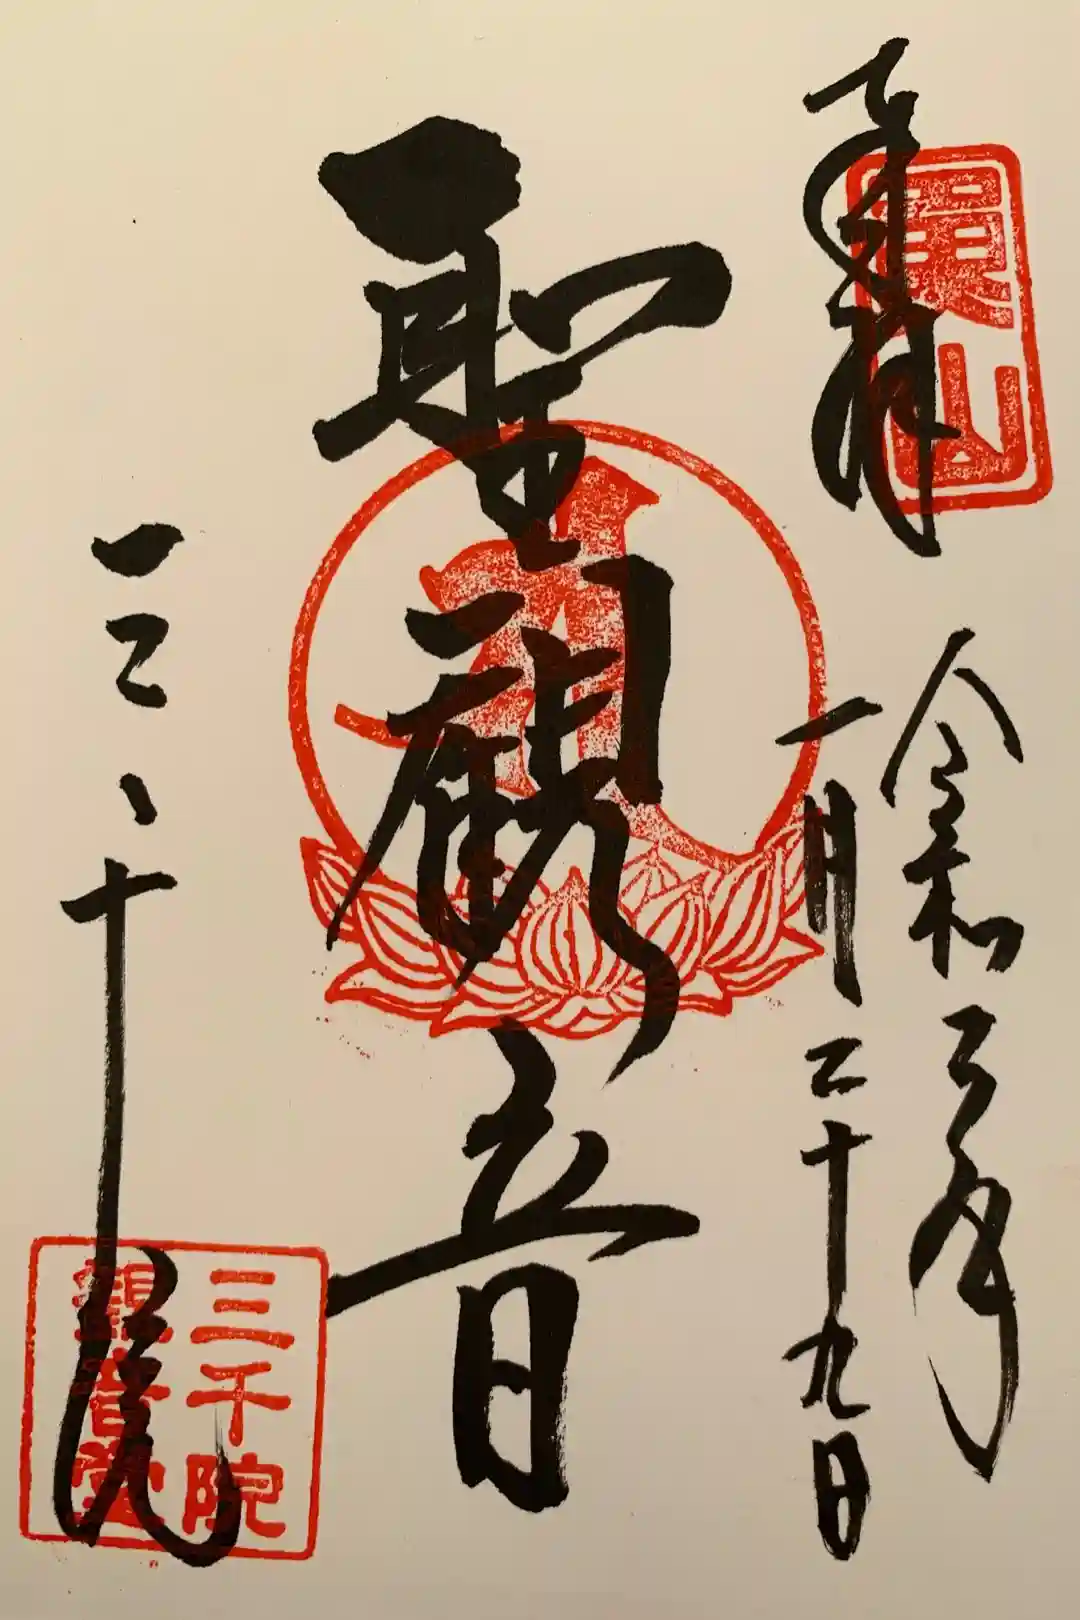 奉拝
魚山
令和三年
一月二十九日
聖観音
三千院
三千院
観音堂